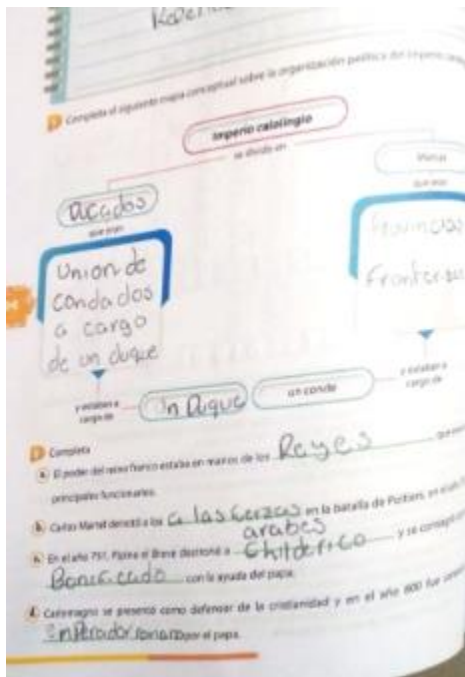 Completa el siguiente mapa conceptual sobre la organización política del Imperio
Imperio calolingio
se dividía en
Ducados
que eran
que eran
Union de
condados
a cargo
de un duque
Provincias
Fronterizas
y estaban a
cargo de
Un Duque
un conde
y estaban a
cargo de
Completa
a. El poder del reino franco estaba en manos de los Reyes
principales funcionarios.
b. Carlos Martel derrotó a los a las fuerzas en la batalla de Poitiers, en el
arabes
c. En el año 751, Pipino el Breve destronó a Childerico y se consagró
con la ayuda del papa.
d. Carlomagno se presentó como defensor de la cristiandad y en el año 800 fue
Emperador romano por el papa.